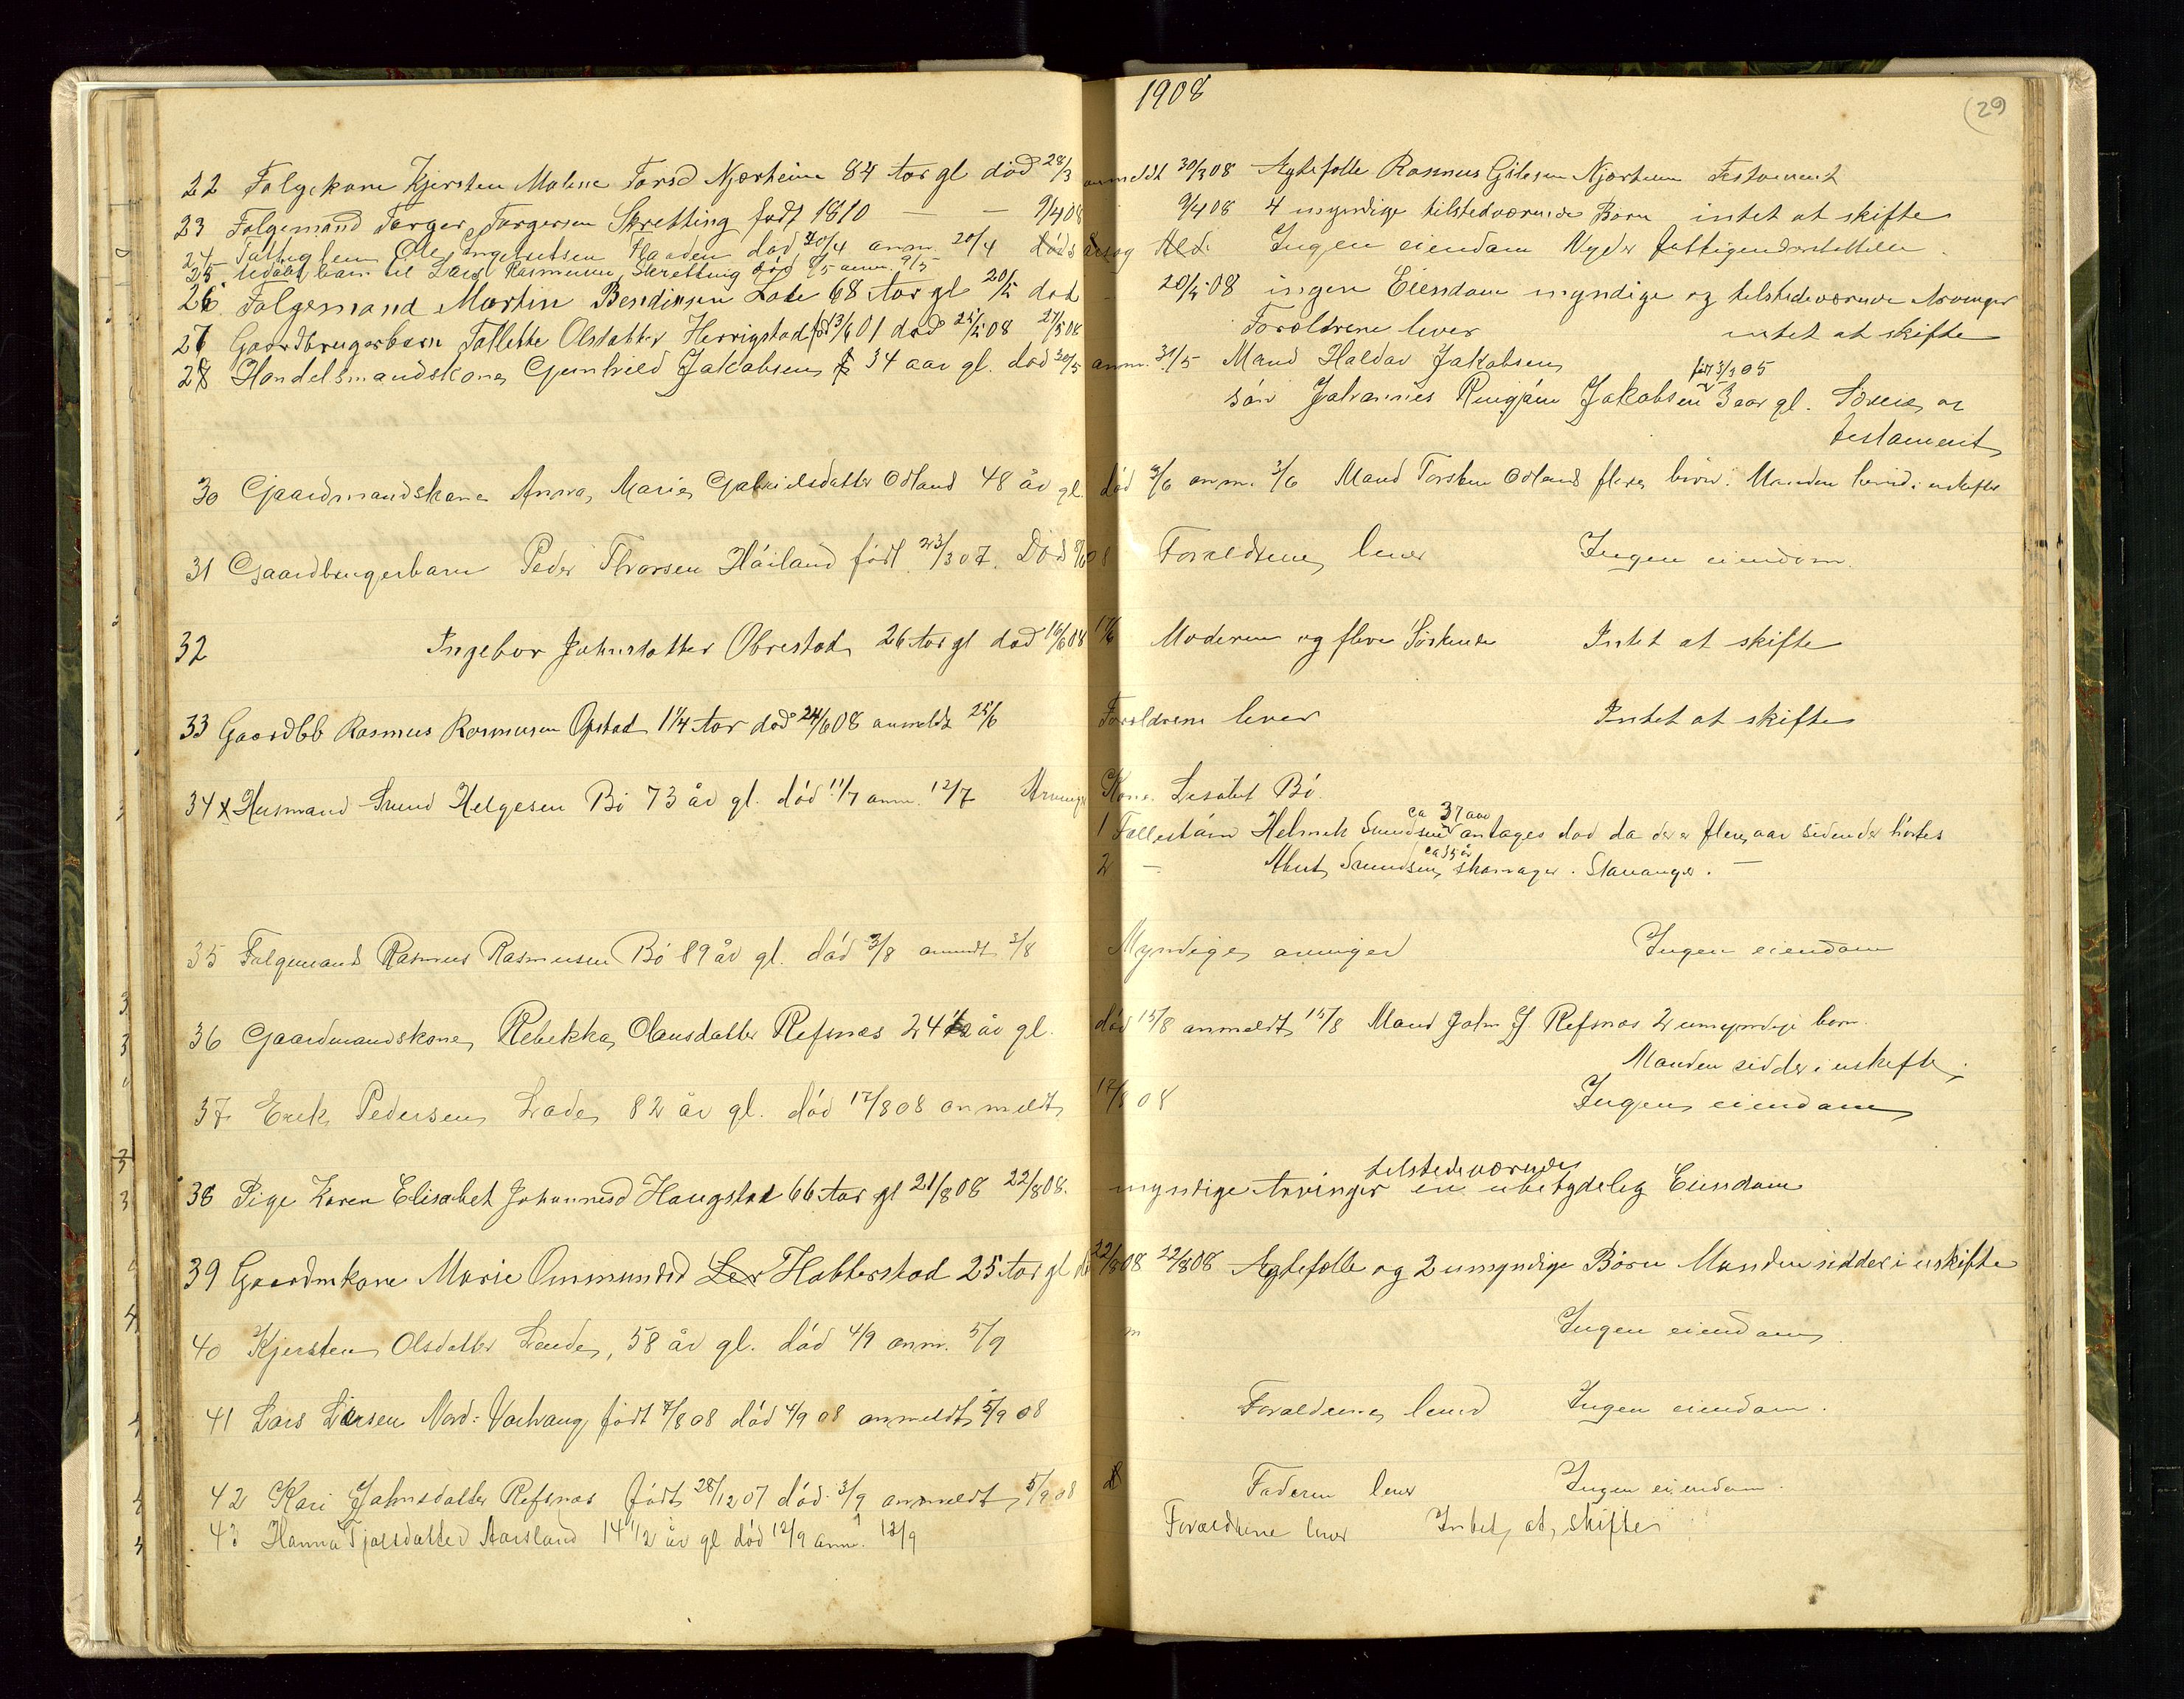 1908
(29
22 Folgekone Kjersten Malene Torsd Njærheim 84 Aar gl död 28/3 anmeldt 30/3 08 Ægtefolle Rasmus Gilesen Njærheim Testament
23 Folgemand Torger Torgersen Skretting födt 1810 — — 9/4 08 9/4 08 4 myndige tilstedeværende Börn intet at skifte
24 Fattiglem Ole Ingebretsen Haaden död 20/4 anm. 20/4 Ingen eiendom Nyder fattigunderstöttelse
25 udöbt barn til Lars Rasmussen Skretting död 8/5 anm. 9/5
26 Folgemand Martin Bendiksen Lode 68 Aar gl 20/5 död - 20/5 08 ingen Eiendom myndige og tilstedeværende Arvinger
27 Gaardbrugerbarn Tollette Olsdatter Herrigstad fd 13/6 01 död 25/5 08 27/5 08 Foraldrene lever intet at skifte
28 Handelsmandskone Gunhild Jakobsen 34 aar gl. död 30/5 anm. 31/5 Mand Haldor Jakobsen
födt 3/3 05
sön Johannes Ringjám Jakobsen 3 aar gl. Særeie og
testament
30 Gaardmandskone Anna Marie Gabrielsdatter Odland 48 år gl. död 3/6 anm. 3/6 Mand Torsten Odland flere börn. Manden hensid. i uskiftet
31 Gaardbrugerbarn Peder Thorsen Háiland födt 23/3 07. Död 8/6 08 Foraldrene lever Ingen eiendom.
32 Ingebor Johnsdatter Obrestad 26 Aar gl död 16/6 08 17/6 Moderen og flere Söskende Intet at skifte
33 Gaardbb Rasmus Rasmusen Opstad 1 1/4 Aar död 24/6 08 anmeldt 25/6 Foraldrene lever Intet at skifte
34 x Husmand Svend Helgesen Bö 73 år gl. död 11/7 anm. 12/7 Arvinge Kone. Lisabet Bö.
ca 37 aar
1 Fællesbárn Helmik Svendsen antages död da der er flere aar siden der hörtes
ca 35 år
2 — Abut Svendsen, skomager. Stavanger. —
35 Folgemand Rasmus Rasmusen Bö 89 år gl. död 3/8 anmdt 3/8 Myndige arvinger Ingen eiendom
36 Gaardmandskone Rebekka Olausdatter Refsnæs 24 1/2 år gl. död 15/8 anmeldt 15/8 Mand John J Refsnæs 2 umyndige born.
Manden sidder i uskifte.
37 Erik Pedersen Lode 82 år gl. död 17/8 08 anmeldt 17/8 08 Ingen eiendom
tilstedeværende
38 Pige Karen Elisabet Johannesd Haugstad 66 Aar gl 21/8 08 22/8 08. myndige Arvinger en ubetydelig Eiendom
39 Gaardmkone Marie Ommundsd Ler Hobberstad 25 Aar gl dö 22/8 08 22/8 08 Ægtefolle og 2 umyndige Börn Manden sidder i uskifte
40 Kjersten Olsdatter Lende, 58 år gl. död 4/9 anm. 5/9 Ingen eiendom
41 Lars Larsen Nord: Varhaug födt 7/8 08 död 4/9 08 anmeldt 5/9 08 Foraldrene lever Ingen eiendom.
42 Kari Johnsdatter Refsnæs födt 28/12 07 död 3/9 anmeldt 5/9 08 Faderen lever Ingen eiendom.
43 Hanna Tjolsdatter Aarsland 14 1/2 år gl död 12/9 anm. 12/9 Foraeldrene lever Intet at skifte